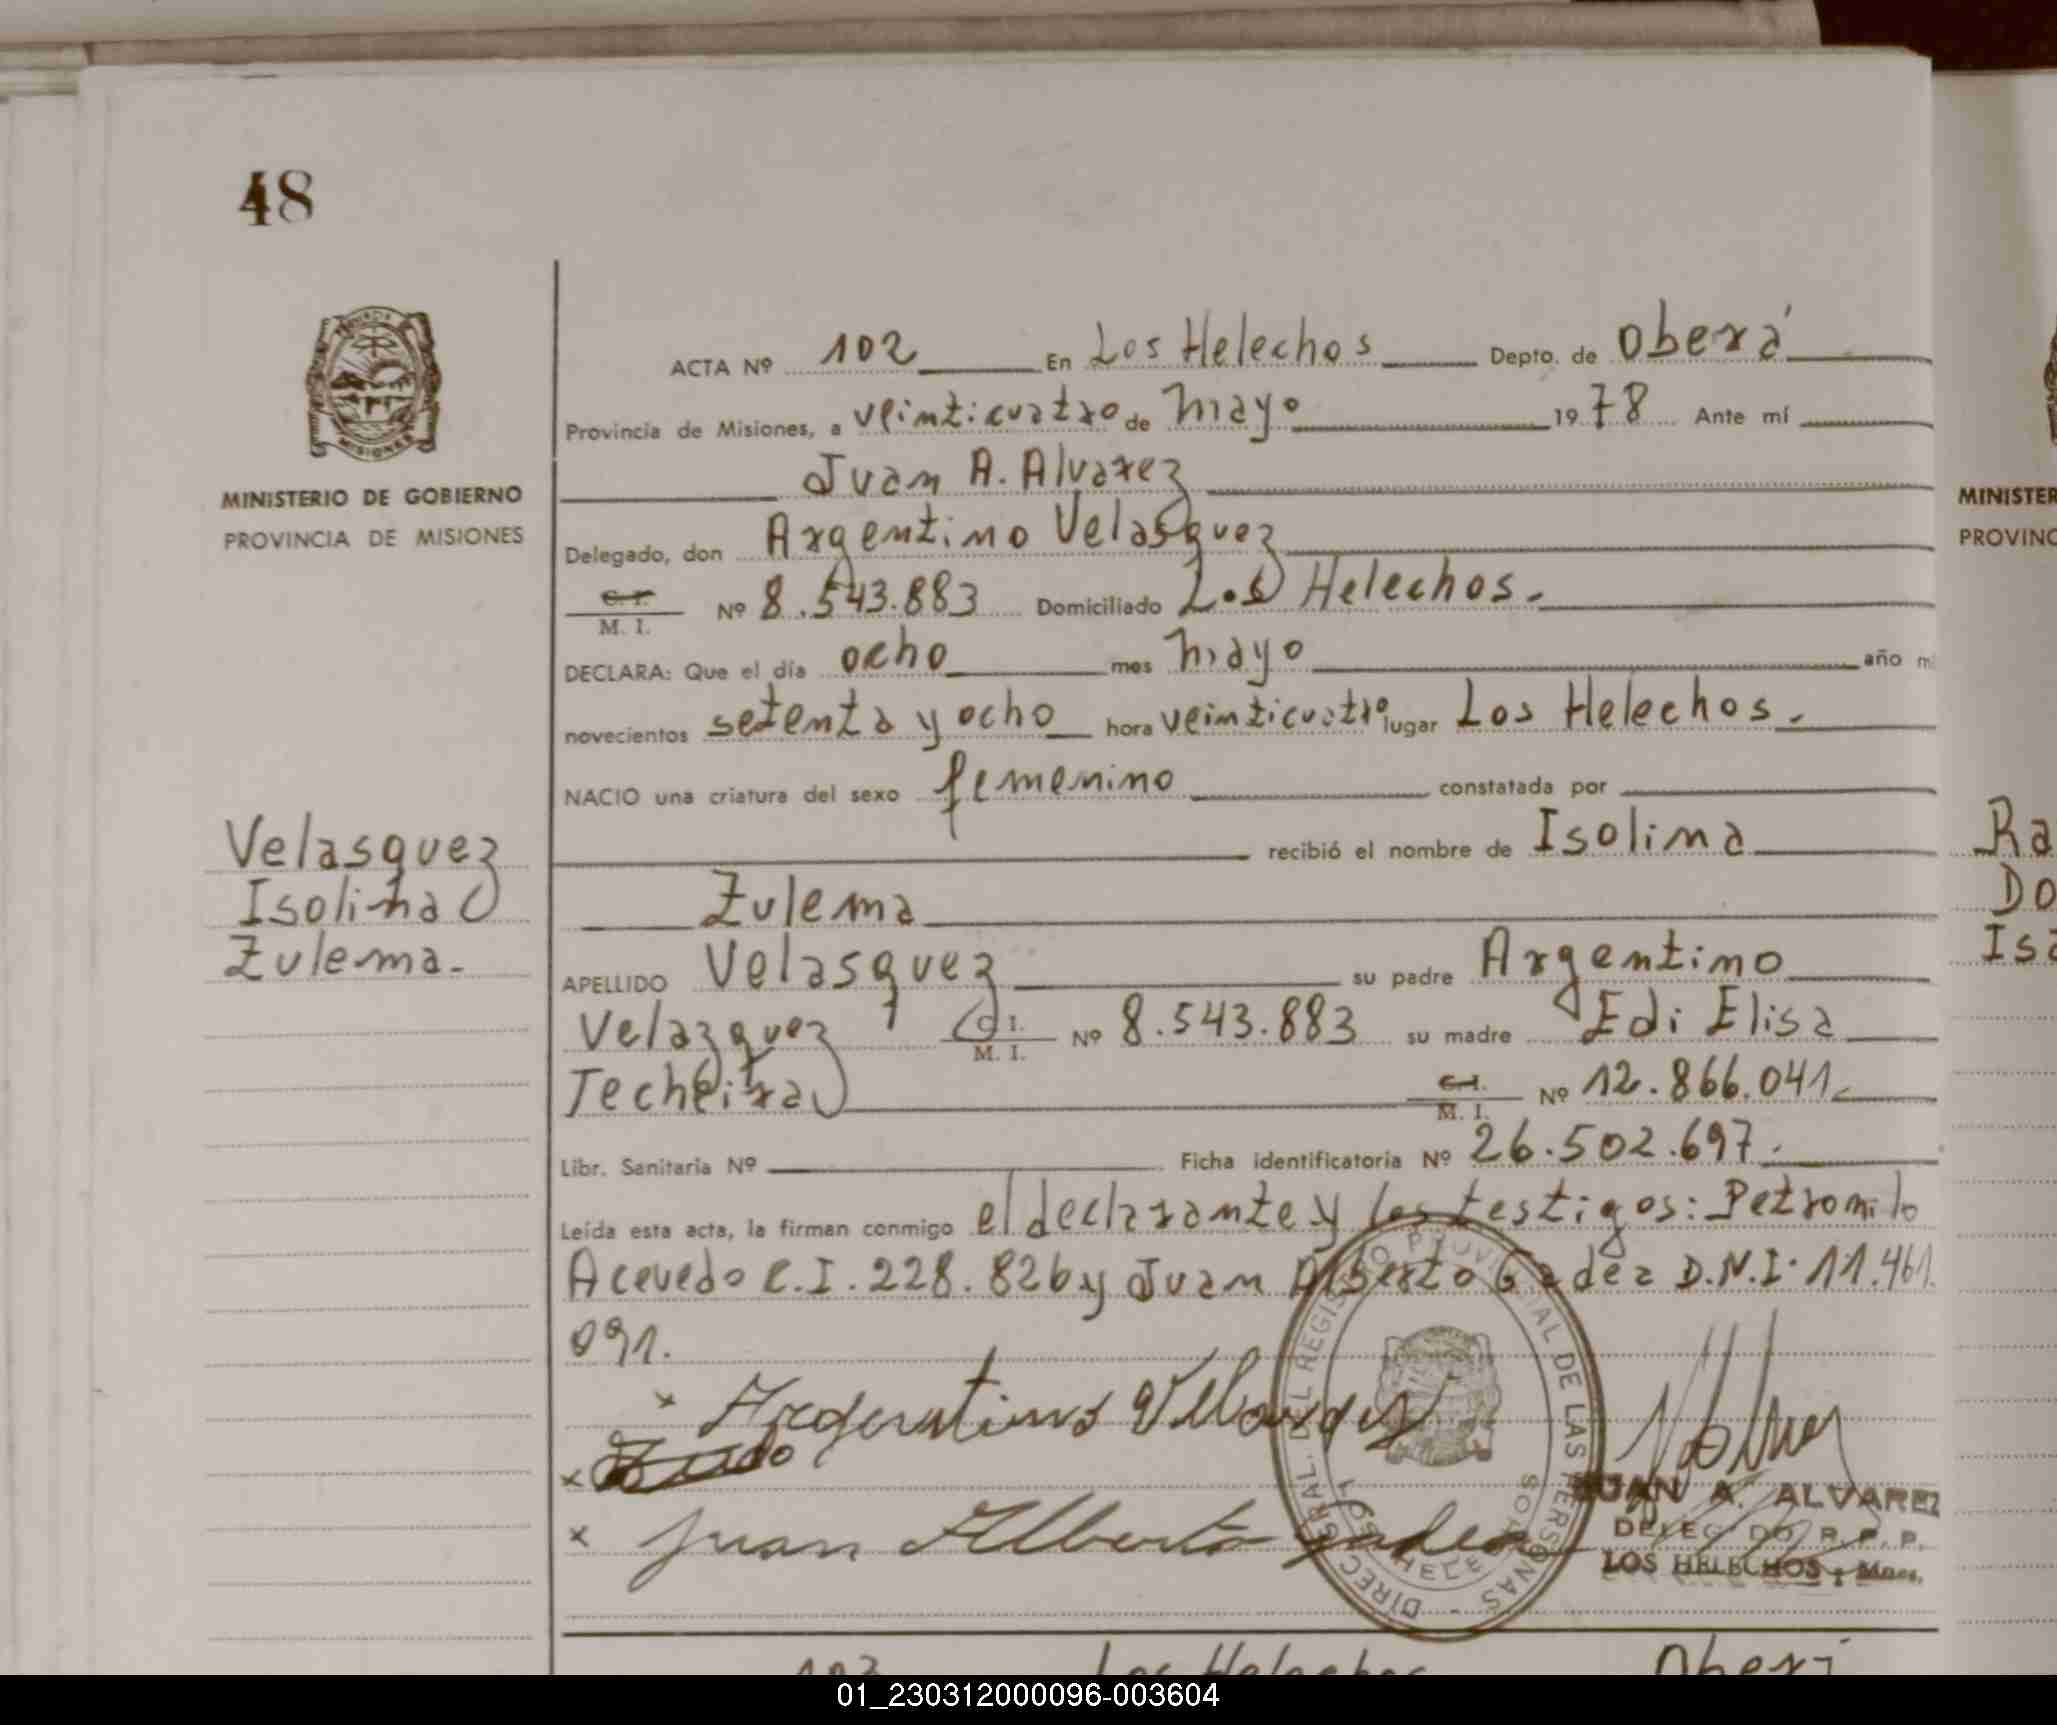 48
MINISTERIO DE GOBIERNO
PROVINCIA DE MISIONES
Velasquez
Isolina
Zulema.
ACTA Nº 102 En Los Helechos Depto. de Oberá
Provincia de Misiones, a veinticuatro de Mayo 1978 Ante mí
Juan A. Alvarez
Delegado, don Argentino Velasquez
C. I. M. I. Nº 8.543.883 Domiciliado Los Helechos.
DECLARA: Que el día ocho mes Mayo año m
novecientos setenta y ocho hora veinticuatro lugar Los Helechos.
NACIO una criatura del sexo femenino constatada por
recibió el nombre de Isolina
Zulema
APELLIDO Velasquez su padre Argentino
Velazquez C. I. M. I. Nº 8.543.883 su madre Edi Elisa
Techeira C. I. M. I. Nº 12.866.041
Libr. Sanitaria Nº Ficha identificatoria Nº 26.502.697.
Leída esta acta, la firman conmigo el declarante y los testigos: Petronilo
Acevedo C.I. 228.826 y Juan Alberto Gadea D.N.I. 11.461.
091.
x Argentino Velasquez
x
x Juan Alberto Gadea
DIREC. GRAL. DEL REGISTRO PROVINCIAL DE LAS PERSONAS
JUAN A. ALVAREZ
DELEGADO R. P. P.
LOS HELECHOS : Mnes.
103 Los Helechos Oberá
MINISTER
PROVINC
Ra
Do
Isa
01_230312000096-003604